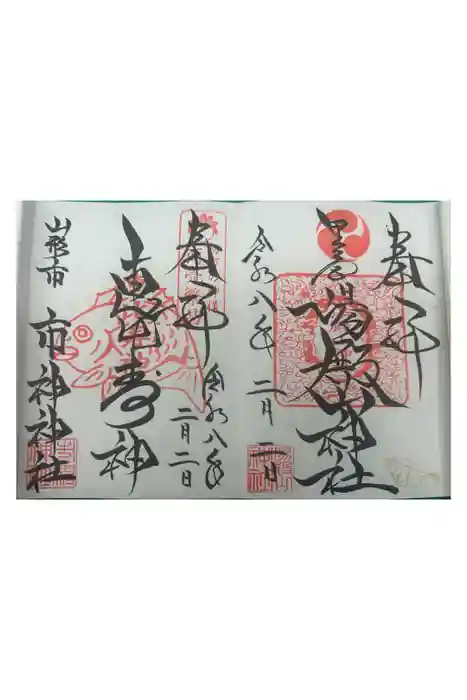 奉拝
里之宮 湯殿山神社
令和八年 二月二日
奉拝
令和八年 二月二日
恵比寿神
山形市 市神神社